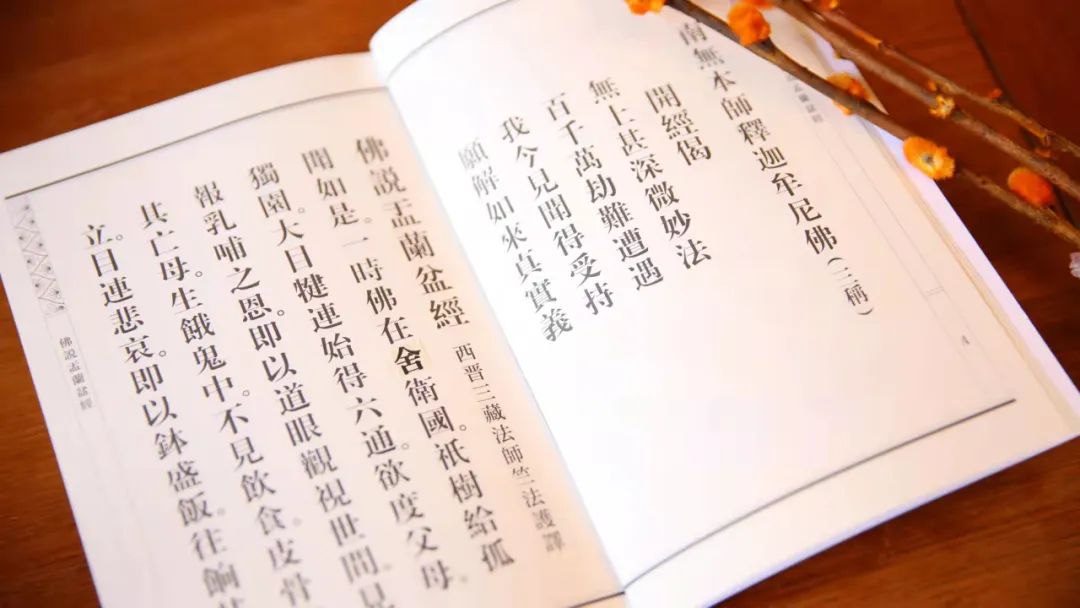 盂蘭盆經
4
南無本師釋迦牟尼佛(三稱)
開經偈
無上甚深微妙法
百千萬劫難遭遇
我今見聞得受持
願解如來真實義
佛說盂蘭盆經 西晉三藏法師竺法護譯
聞如是。一時佛在舍衛國。祇樹給孤
獨園。大目犍連始得六通。欲度父母。
報乳哺之恩。即以道眼觀視世間。見
其亡母。生餓鬼中。不見飲食。皮骨
立。目連悲哀。即以鉢盛飯。往餉
佛說盂蘭盆經